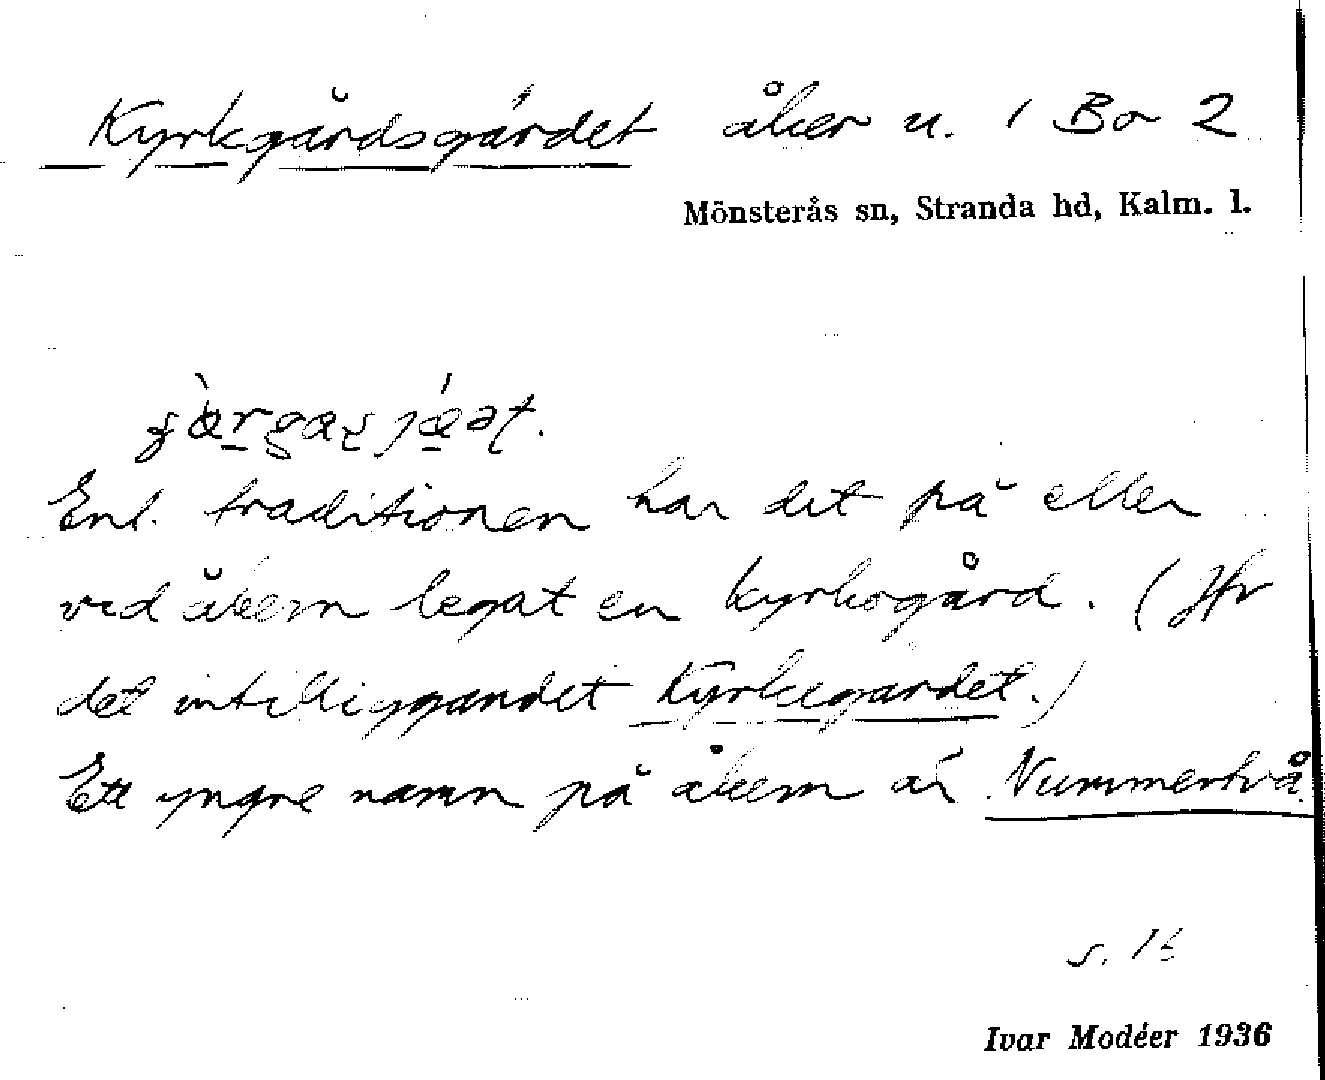 Kyrkgårdsgärdet åker u. 1 Bo 2
Mönsterås sn, Stranda hd, Kalm. l.
Enl. traditionen har det på eller
vid åkern legat en kyrkogård. (Jfr
det intilliggandet Kyrkegärdet.)
Ett yngre namn på åkern är Nummertvå
s. 16
Ivar Modéer 1936